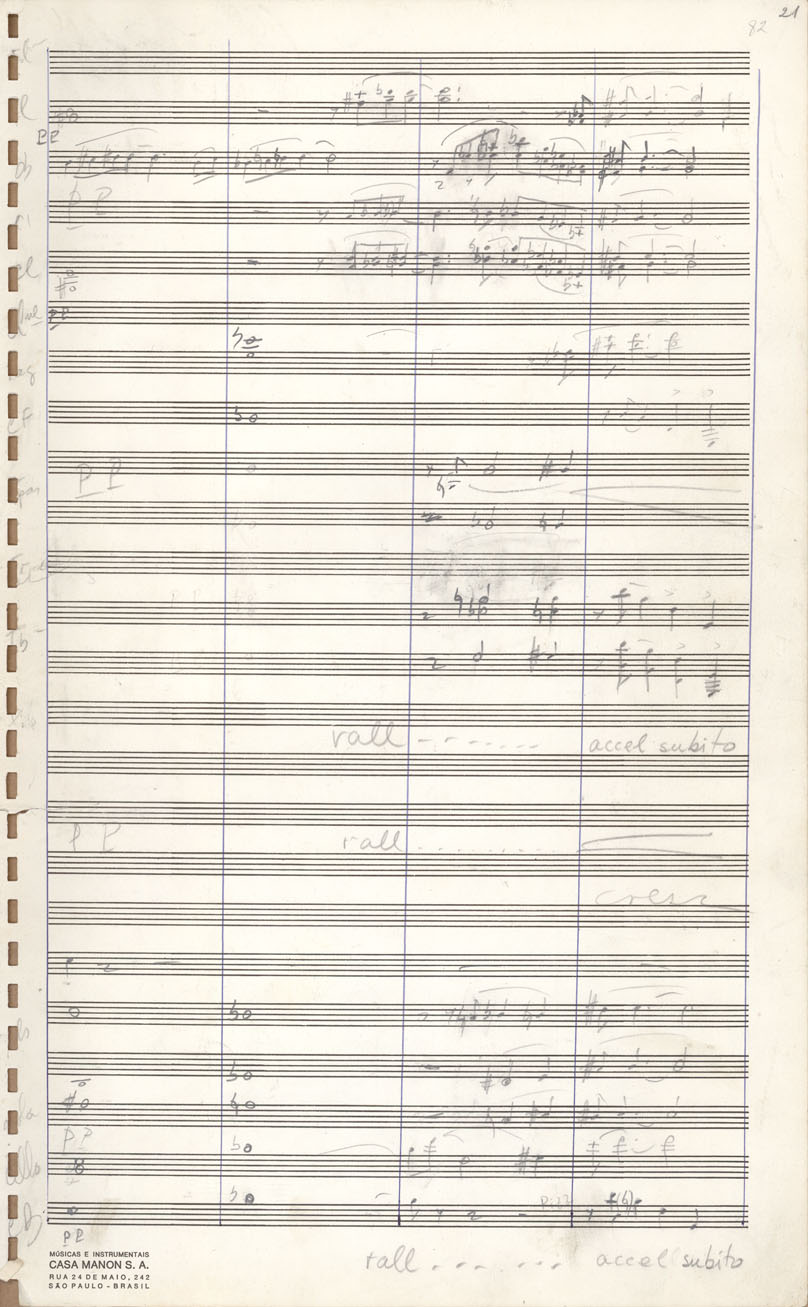 21
82
pp
pp
pp
pp
rall - - - - - - -
accel subito
pp
rall . . . . . . .
cresc
pp
pizz
pp
rall . . . . . . .
accel subito
MÚSICAS E INSTRUMENTAIS
CASA MANON S. A.
RUA 24 DE MAIO, 242
SÃO PAULO - BRASIL